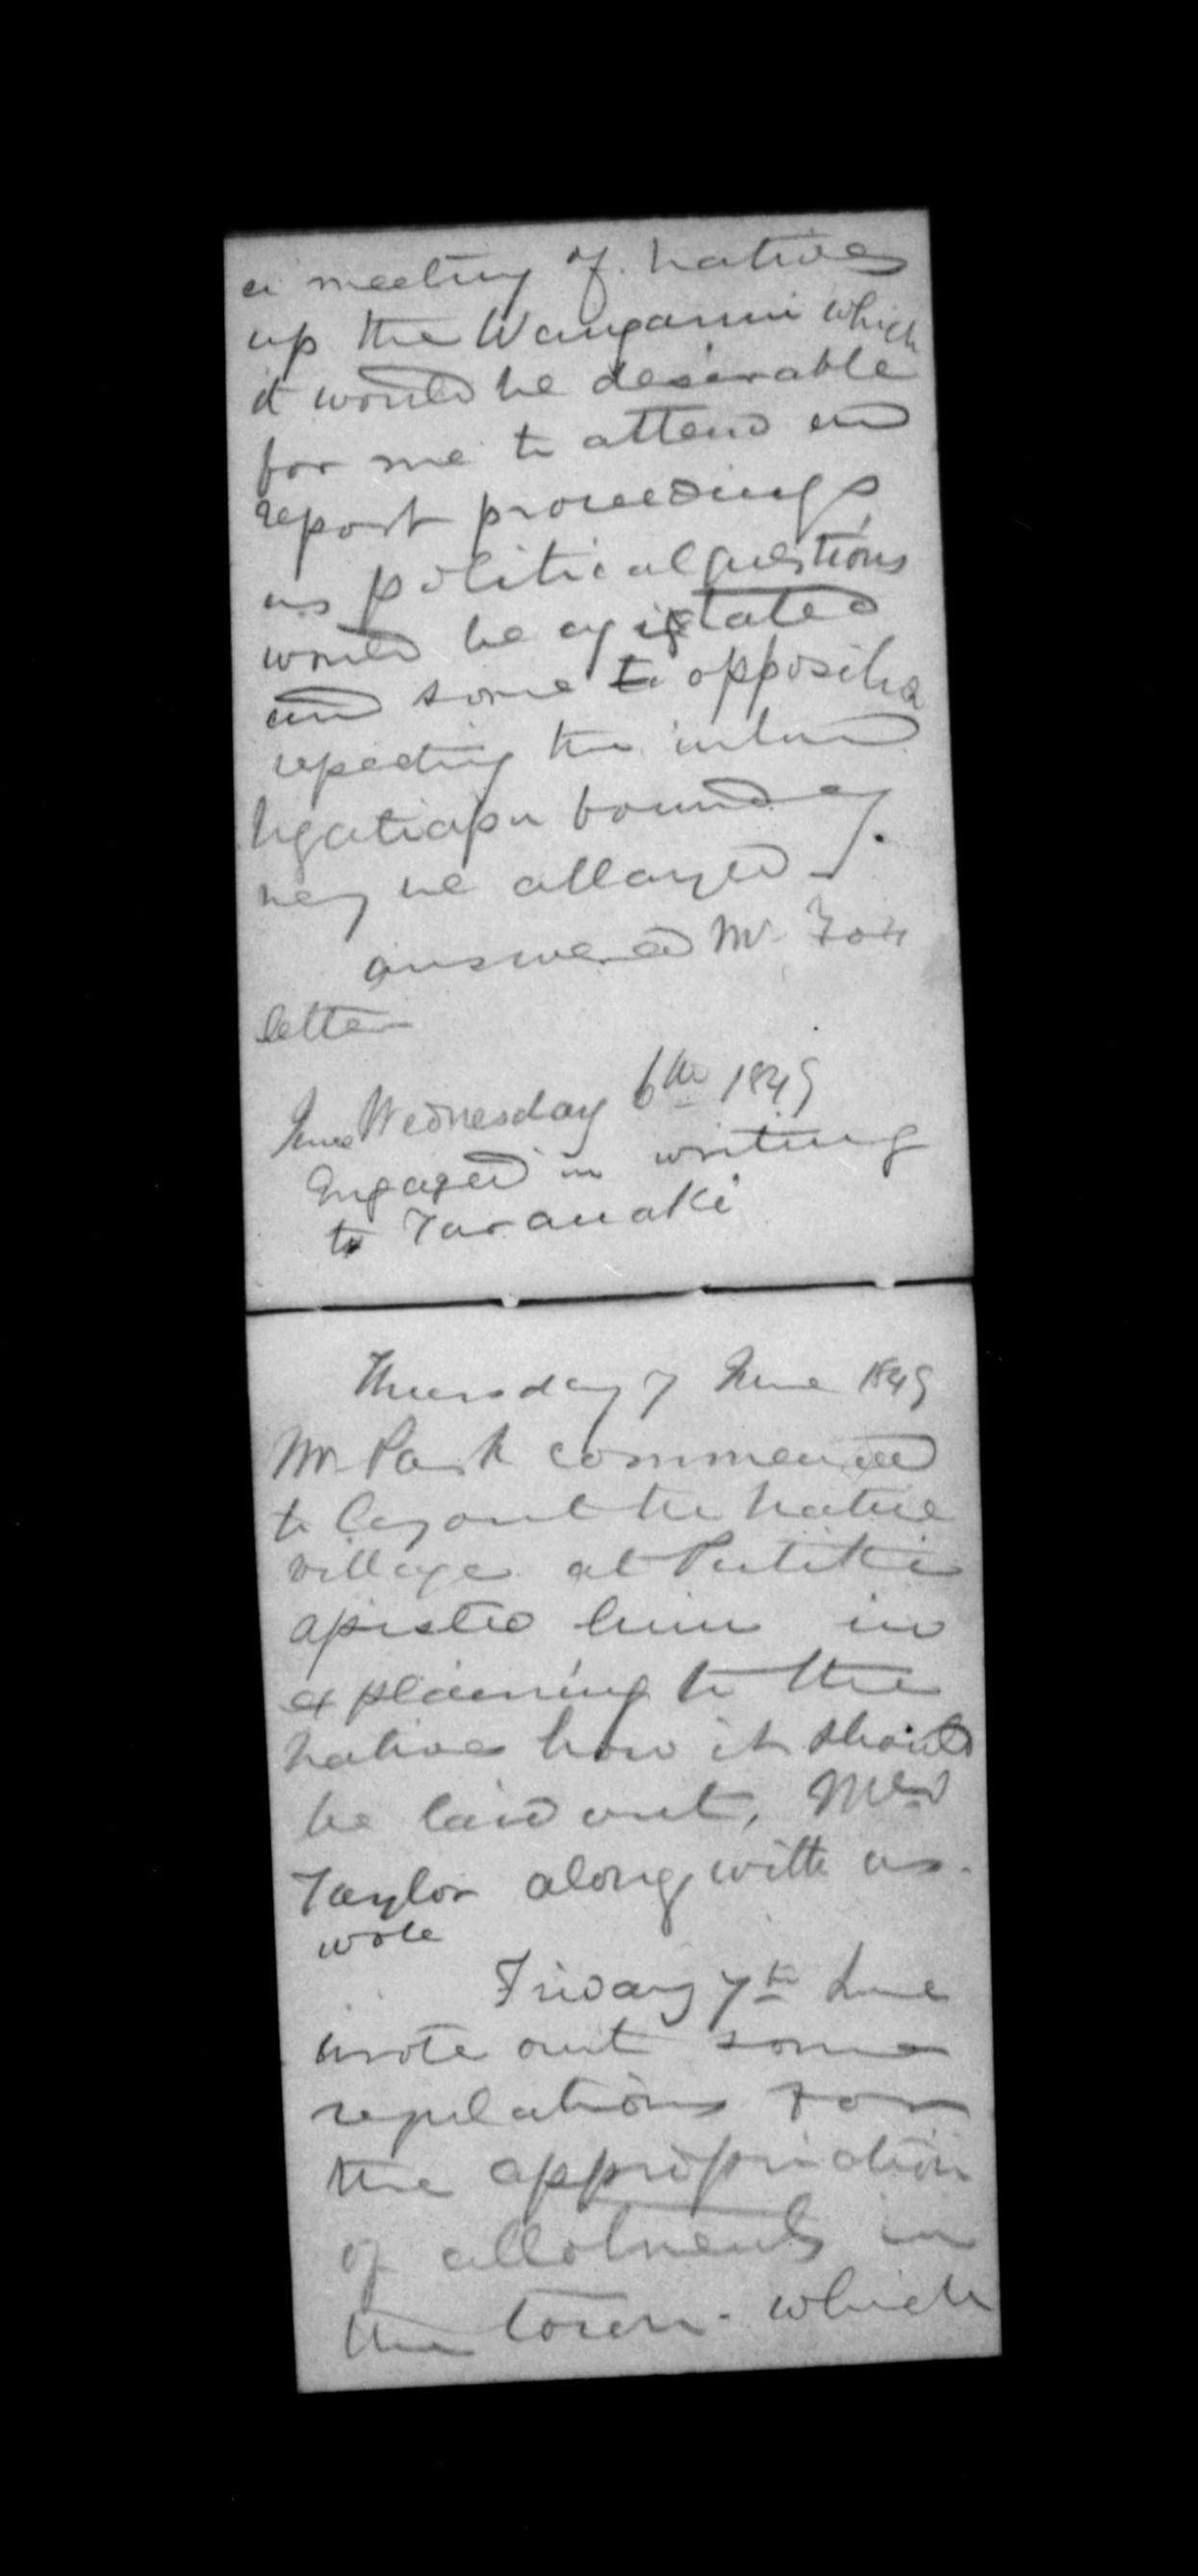 a meeting of natives
up the Wanganui which
it would be desirable
for me to attend and
report proceedings
as political questions
would be agitated
and some opposition
respecting the inland
Ngatiapa boundary
may be allayed.
answered Mr Fox
letter
June Wednesday 6th 1849
Engaged in writing
to Taranaki
Thursday 7 June 1849
Mr Park commenced
to lay out the native
village at Putiki
assisted him in
explaining to the
natives how it should
be laid out,
Taylor along with us.
wrote
Friday 7th June
wrote out some
regulations for
the appropriation
of allotments in
the town. which